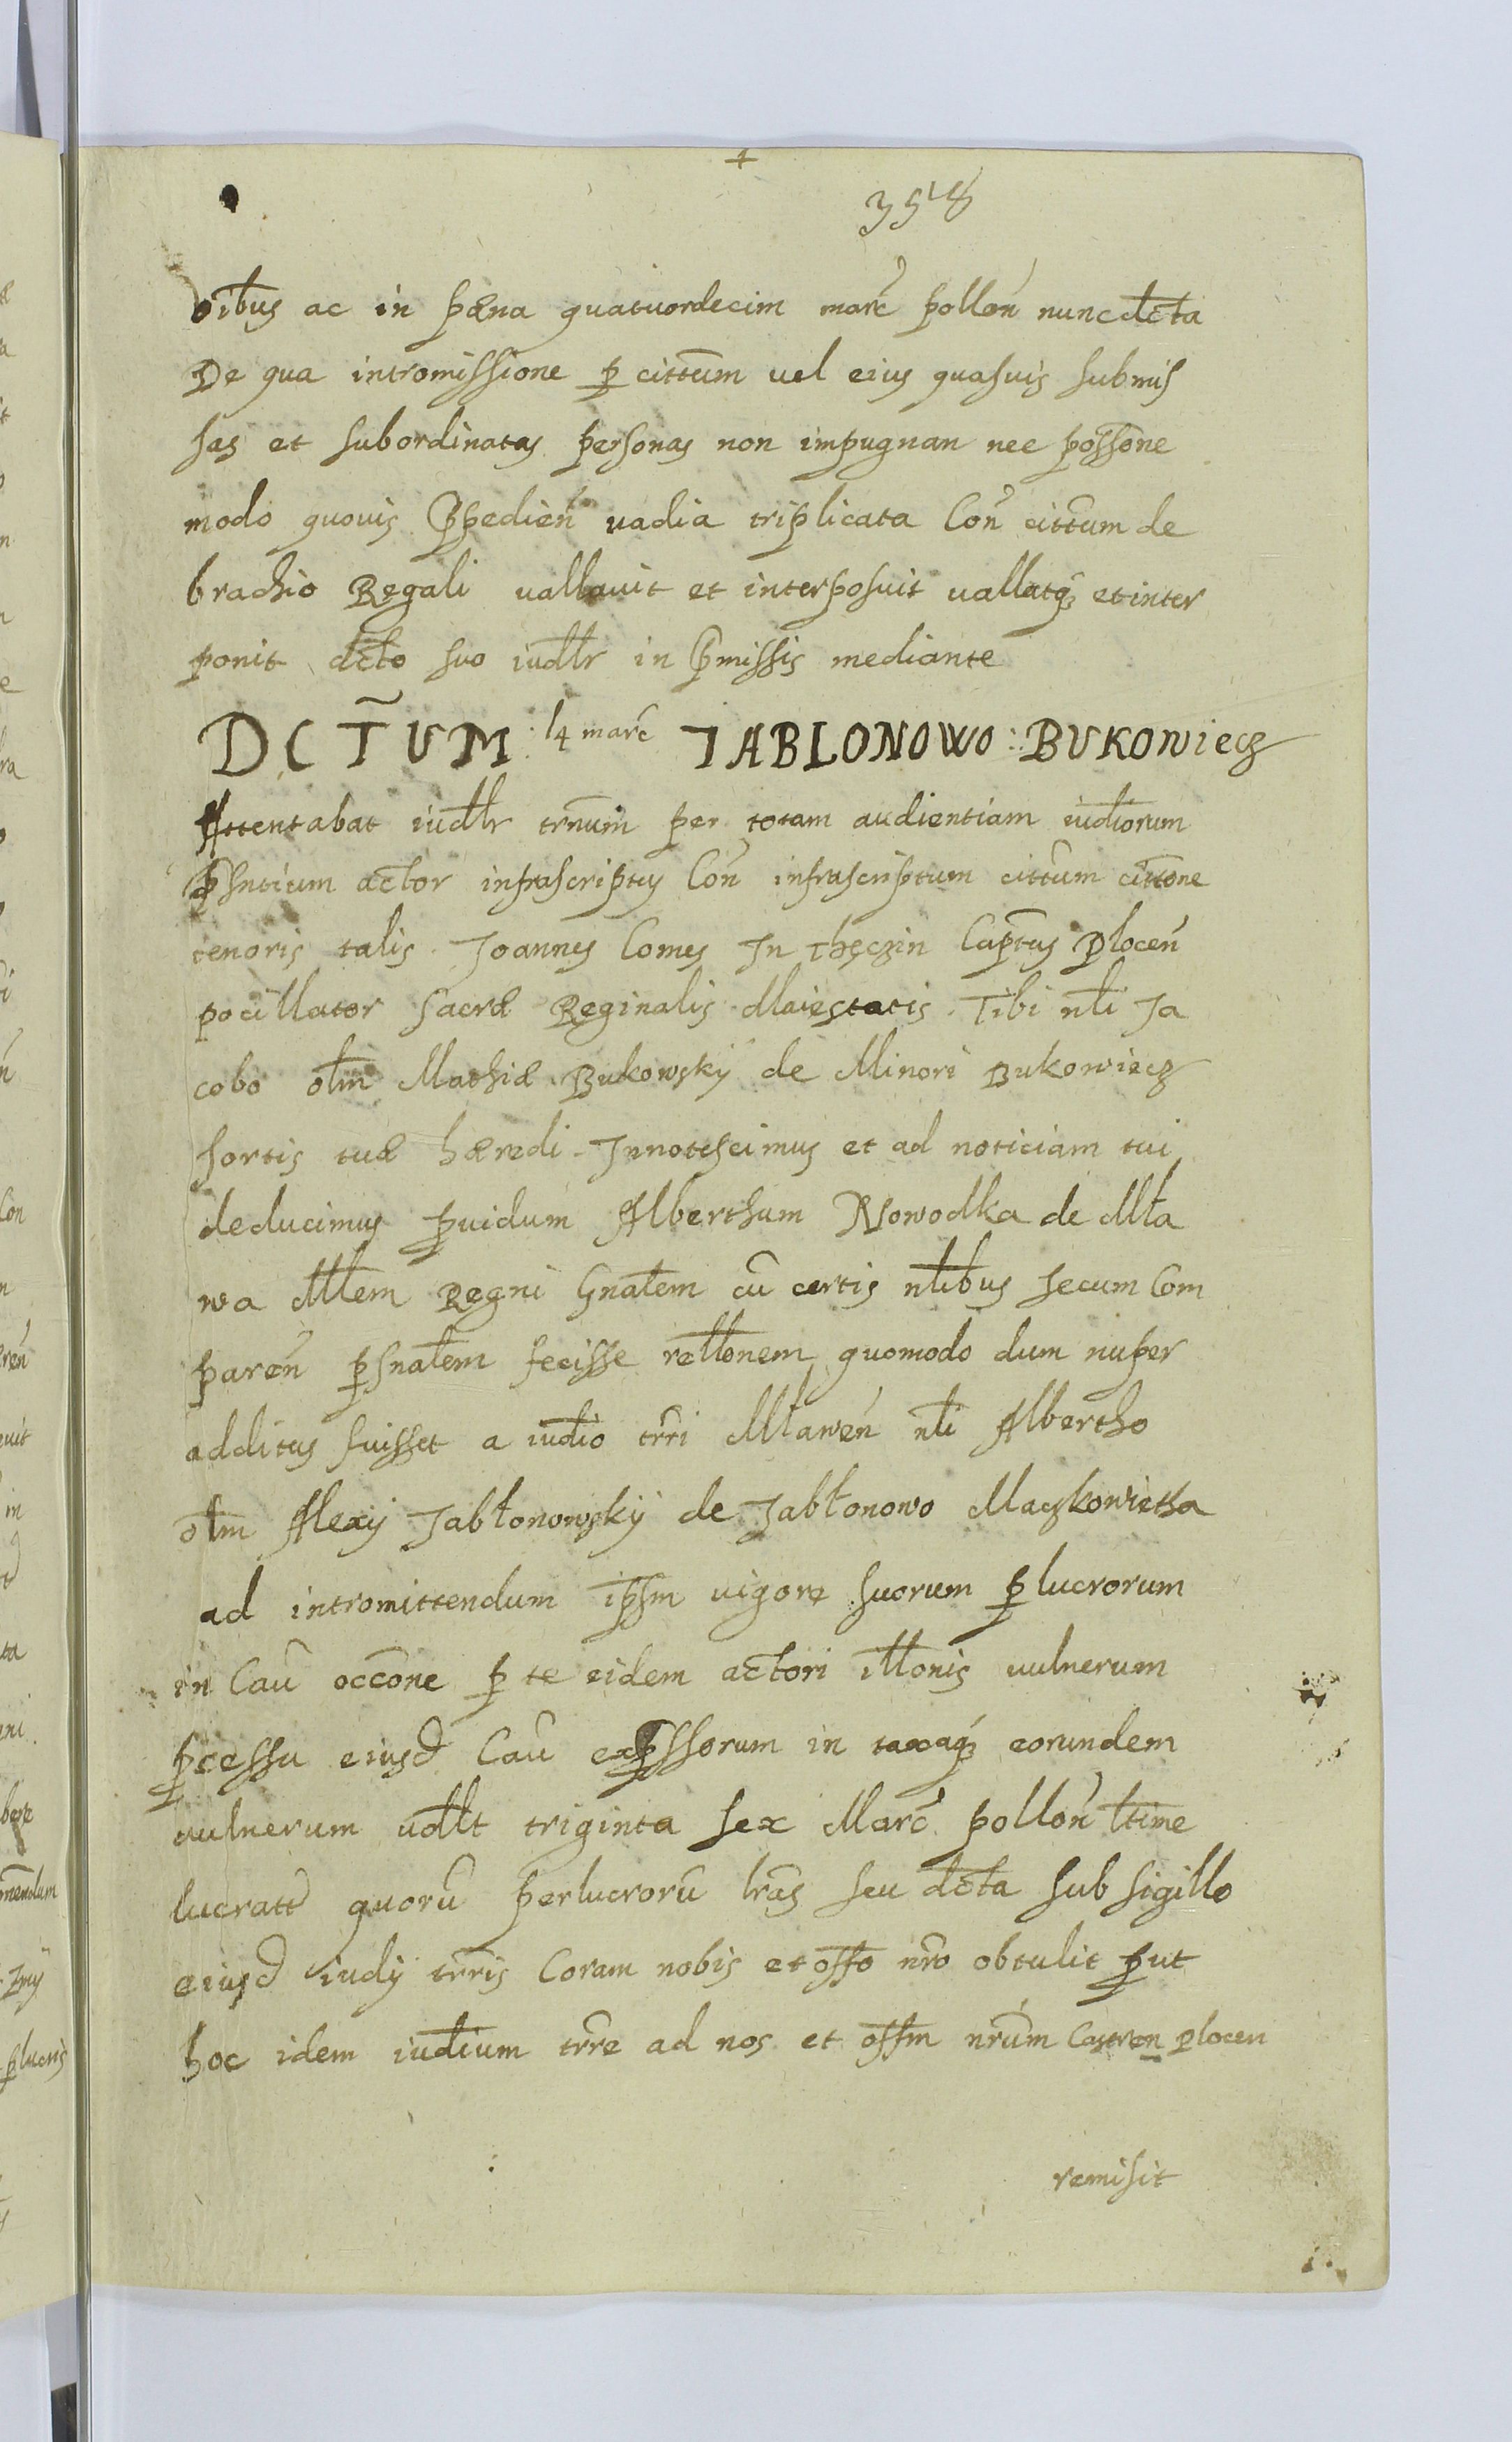 358
oibus ac in pæna quatuordecim marc̃ pollon̄ nunc dc̄ta
De qua intromissione ꝑ cittum̄ uel eius quasuis submis
sas et subordinatas personas non impugnan nec possōne
modo quouis Præpedien̄ uadia triplicata Con̄ cittum̄ de
brachio Regali uallauit et interposuit uallatq₃ et inter
ponit dc̄to suo iudl̄r in P̄missis mediante
DCT̃UM 14 marc̃ IABLONOWO : BUKOWiecz
Attentabat iudl̄r trn̄um per totam audientiam iudiorum
p̄sntium actor infrascriptus Con̄ infrascriptum cittum̄ cittōne
tenoris talis Joannes Comes In Thęczin Capt̄us Plocen̄
pocillator Sacræ Reginalis Maiestatis Tibi nl̄i Ja
cobo ol̄m Mathiæ Bukowskÿ de Minori Bukowiecz
sortis tuæ hæredi Innotescimus et ad noticiam tui
deducimus ꝓuidum Alberthum Nowodka de Mła
wa Ml̄em Regni Gnal̄em cū certis nl̄ibus secum Com
paren̄ p̄snal̄em fecisse rel̄lonem quomodo dum nuper
additus fuisset a iudīo trr̄i Mławen̄ nl̄i Albertho
ol̄m Alexÿ Jabłonowskÿ de Jabłonowo Maczkowietha
ad intromittendum ip̄sm uigore suorum ꝑlucrorum
in Cau̅ occōne ꝑ te eidem actori il̄lonis uulnerum
ꝓcessu eiusd Cau̅ exp̄ssorum in taxaq₃ eorundem
uulnerum udl̄t triginta sex Marc̃ pollon̄ l̄time
lucrat̄ quorū perlucrorū lr̄as seu dc̄ta sub sigillo
eiusd iudÿ trr̄is Coram nobis et off̄o nr̄o obtulit ꝓut
hoc idem iudīum trr̄e ad nos et off̄m nr̄um Castren plocen
remisit